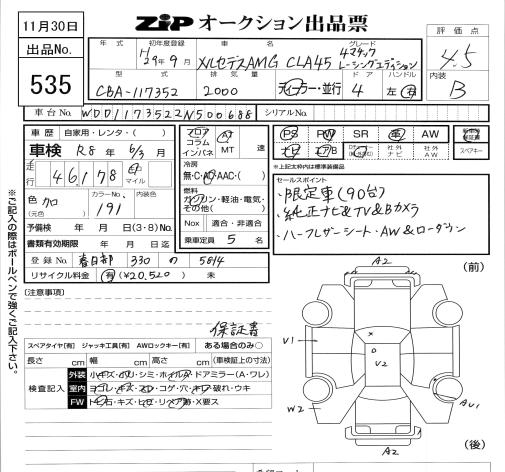 11月30日
出品No.
535
ZIP オークション出品票
評価点
4.5
内装
B
年式
初年度登録
H29年9月
車名
メルセデスAMG CLA45
グレード
4マチック
レーシングエディション
型式
CBA-117352
排気量
2000
ディーラー・並行
ドア
4
ハンドル
左・右
車台No.
WDD1173522N500688
シリアルNo.
車歴
自家用・レンタ・( )
車検 R8年 6/3月
走行
46,178
km
マイル
色
(元色)
カラーNo.
191
内装色
予備検 年 月 日(3・8)No.
書類有効期限 年 月 日迄
登録No. 春日部 330 の 5814
リサイクル料金 有(¥20,520) 未
フロア
コラム
インパネ
AT
MT
速
冷房
無・C・AC・AAC・( )
燃料
ガソリン・軽油・電気・
その他( )
Nox 適合・非適合
乗車定員 5 名
PS
PW
SR
革
AW
新車時保証書
エアB
社外ナビ
社外AW
スペアキー
*上記枠内は標準装備品
セールスポイント
・限定車(90台)
・純正ナビ&TV&Bカメラ
・ハーフレザーシート・AW&ローダウン
(注意事項)
保証書
スペアタイヤ[有] ジャッキ工具[有] AWロックキー[有] ある場合のみ○
長さ cm 幅 cm 高さ cm (車検証上の寸法)
検査記入
外装 小キズ・ハリ・シミ・ホイルキズ・ドアミラー(A・ワレ)
室内 ヨゴレ・キズ・スレ・コゲ・穴・キレ・破れ・ウキ
FW トビ石・キズ・ヒビ・リペア跡・X要ス
※ご記入の際はボールペンで強くご記入下さい。
A2
(前)
V1
V2
W2
AU1
A2
(後)